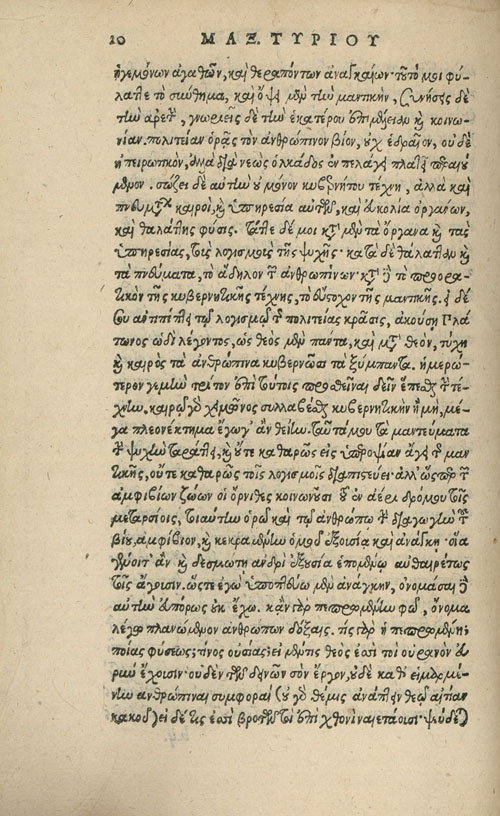 20 ΜΑΞ. ΤΥΡΙΟΥ
ἡγεμόνων ἀγαθῶν, καὶ θεραπόντων ἀναγκαίων· τοῦτό μοι φύ-
λατ]ε τὸ σύνθημα, καὶ ὄψει μὲν τὴν μαντικὴν, ζυνήσεις δὲ
τὴν ἀρετὴν, γνωριεῖς δὲ τὴν ἑκατέρου ἐπιμιξίαν καὶ κοινω-
νίαν. πολιτείαν ὁρᾷς τὸν ἀνθρώπινον βίον, οὐχ ἑδραῖον, οὐδὲ
ἠπειρωτικὸν, ἀλλὰ διὰ νεὼς ὁλκάδος ἐν πελάγει πλατεῖ περαιου
μένου. σώζει δὲ αὐτὴν οὐ μόνον κυβερνήτου τέχνη, ἀλλὰ καὶ
πνευμάτων καιροὶ, καὶ ὑπηρεσία ναυτῶν, καὶ εὐκολία ὀργάνων,
καὶ θαλάττης φύσις. τάττε δέ μοι κατὰ μὲν τὰ ὄργανα καὶ τὰς
ὑπηρεσίας, τοὺς λογισμοὺς τῆς ψυχῆς· κατὰ δὲ θάλατταν καὶ
τὰ πνεύματα, τὸ ἄδηλον τῶν ἀνθρωπίνων· κατὰ δὲ τὸ προορα-
τικὸν τῆς κυβερνητικῆς τέχνης, τὸ εὔστοχον τῆς μαντικῆς. εἰ δέ
σου ἀντιπίπτει τῷ λογισμῷ τῆς πολιτείας κρᾶσις, ἀκούσῃ Πλά
τωνος ὡδὶ λέγοντος, ὡς θεὸς μὲν πάντα, καὶ μετὰ θεὸν, τύχη
καὶ καιρὸς τὰ ἀνθρώπινα κυβερνῶσι τὰ ξύμπαντα. ἡμερώ-
τερον γε μὴν τρίτον ἐπὶ τούτοις προσθεῖναι δεῖν ἕπεσθαι τὴν τέ-
χνην, καιρῷ γὰρ χειμῶνος συλλαβέσθαι κυβερνητικὴν ἢ μὴ, μέ-
γα πλεονέκτημα ἔγωγ᾽ ἂν θείην. ταῦτά μου τὰ μαντεύματα
τὴν ψυχὴν ταράττει, καὶ οὔτε καθαρῶς εἰς ὑπεροψίαν ἄγει τῆς μαν
τικῆς, οὔτε καθαρῶς τοῖς λογισμοῖς διαπιστεύει· ἀλλ᾽ ὥσπερ τῶν
ἀμφιβίων ζώων οἱ ὄρνιθες κοινωνοῦσι τοῦ ἐν ἀέρι δρόμου τοῖς
μεταρσίοις, τοιαύτην ὁρῶ καὶ τῷ ἀνθρώπῳ τὴν διαγωγὴν τοῦ
βίου, ἀμφίβιον, καὶ κεκραμένην ὁμοῦ ἐξουσίᾳ καὶ ἀνάγκῃ· οἵα
γένοιτ᾽ ἂν καὶ δεσμώτῃ ἀνδρὶ ἐξουσία ἑπομένῳ αὐθαιρέτως
τοῖς ἄγουσιν. ὥστε ἐγὼ ὑποπτεύω μὲν ἀνάγκην, ὀνομάσαι δὲ
αὐτὴν εὐπόρως οὐκ ἔχω. κἂν γὰρ πεπρωμένην φῶ, ὄνομα
λέγω πλανώμενον ἀνθρώπων δόξαις. τίς γὰρ ἡ πεπρωμένη;
ποίας φύσεως; τίνος οὐσίας; εἰ μέν τις θεός ἐσσι τοὶ οὐρανὸν εὐ
ρὺν ἔχουσιν· οὐδὲν τῶν δεινῶν σὸν ἔργον, οὐδὲ καθ᾽ εἱμαρμέ-
νην ἀνθρώπιναι συμφοραί (οὐ γὰρ θέμις ἀνάπτειν θεῷ αἰτίαν
κακοῦ) εἰ δέ τις ἐσσὶ βροτῶν τοὶ ἐπὶ χθονὶ ναιετάουσι· ψεύδε(